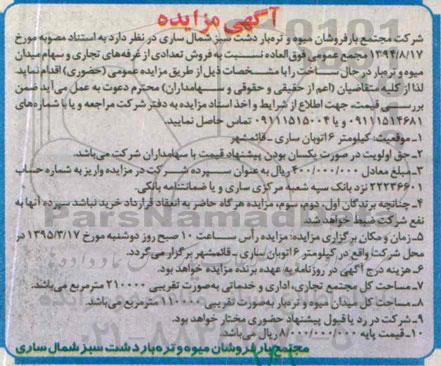 آگهی مزایده
شرکت مجتمع بارفروشان میوه و تره‌بار دشت سبز شمال ساری در نظر دارد به استناد مصوبه مورخ
۱۳۹۴/۸/۱۷ مجمع عمومی فوق‌العاده نسبت به فروش تعدادی از غرفه‌های تجاری و سهام میدان
میوه و تره‌بار در حال ساخت را با مشخصات ذیل از طریق مزایده عمومی (حضوری) اقدام نماید
لذا از کلیه متقاضیان (اعم از حقیقی و حقوقی و سهامداران) محترم دعوت به عمل می‌آید ضمن
بررسی قیمت، جهت اطلاع از شرایط و اخذ اسناد مزایده به دفتر شرکت مراجعه و یا با شماره‌های
۰۹۱۱۱۵۱۴۶۸۱ و یا ۰۹۱۱۱۵۱۵۰۰۴ تماس حاصل نمایید.
۱ـ موقعیت: کیلومتر ۶ اتوبان ساری ـ قائمشهر
۲ـ حق اولویت در صورت یکسان بودن پیشنهاد قیمت با سهامداران شرکت می‌باشد.
۳ـ مبلغ معادل ۴۰۰/۰۰۰/۰۰۰ ریال به عنوان سپرده شرکت در مزایده واریز به شماره حساب
۲۲۲۳۶۶۰۱ نزد بانک سپه شعبه مرکزی ساری و یا ضمانتنامه بانکی.
۴ـ چنانچه برندگان اول، دوم، سوم، مزایده هرگاه حاضر به انعقاد قرارداد خرید نباشد سپرده آنها به
نفع شرکت ضبط خواهد شد.
۵ـ زمان و مکان برگزاری مزایده: مزایده رأس ساعت ۱۰ صبح روز دوشنبه مورخ ۱۳۹۵/۳/۱۷ در
محل شرکت واقع در کیلومتر ۶ اتوبان ساری ـ قائمشهر برگزار می‌گردد.
۶ـ هزینه درج آگهی در روزنامه به عهده برنده مزایده خواهد بود.
۷ـ مساحت کل مجتمع تجاری، اداری و خدماتی به‌صورت تقریبی ۲۱۰۰۰۰ مترمربع می‌باشد.
۸ـ مساحت کل میدان میوه و تره‌بار به صورت تقریبی مترمربع می‌باشد.
۹ـ شرکت در رد یا قبول پیشنهاد حضوری مختار خواهد بود.
۱۰ـ قیمت پایه ۸/۰۰۰/۰۰۰/۰۰۰ ریال می‌باشد.
مجتمع بارفروشان میوه و تره‌بار دشت سبز شمال ساری
ParsNamadData